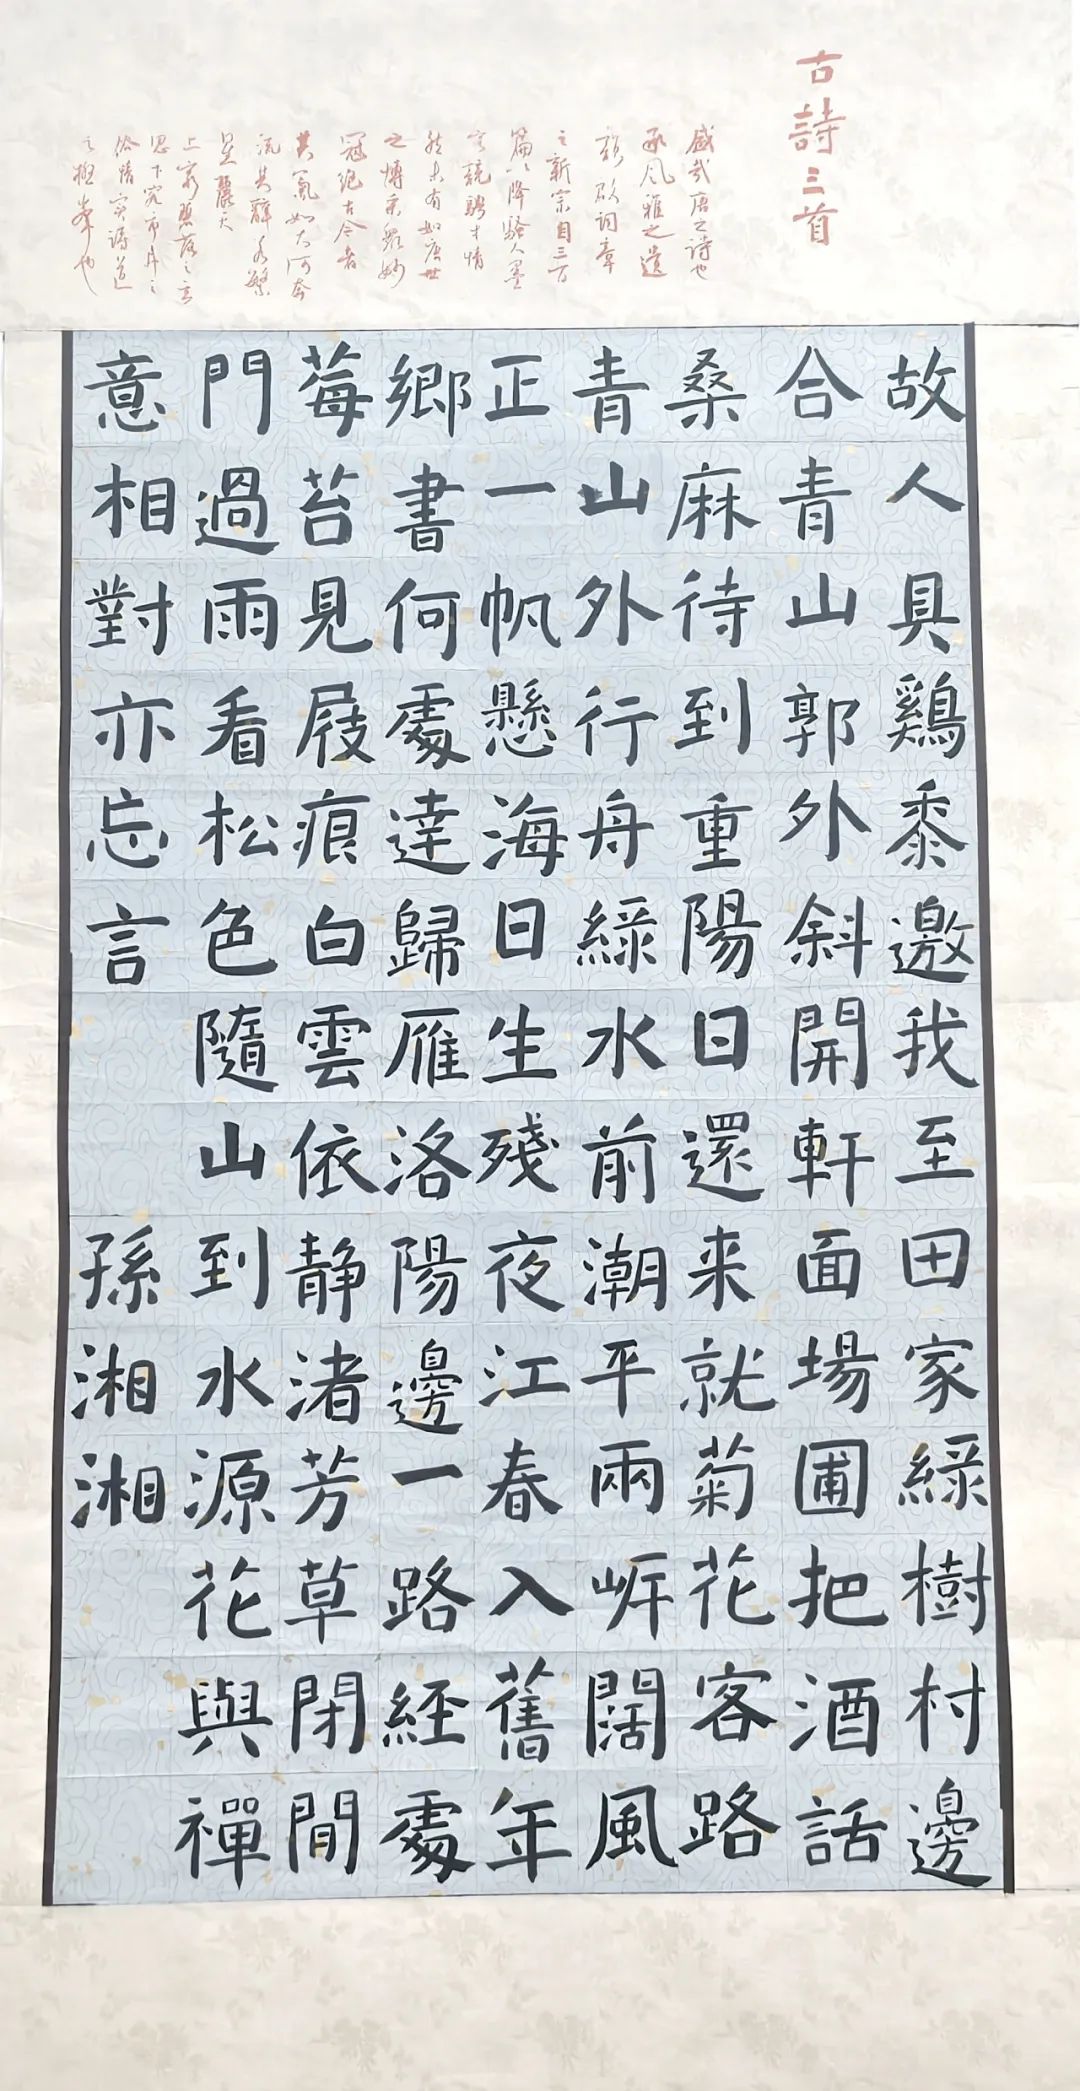 古詩三首
盛哉唐之詩也
承風雅之遺
韻啟詞章
之新宗自三百
篇以降騷人墨
客競騁才情
然未有如唐世
之博采衆妙
冠絕古今者
其氣如大河奔
流其辭若繁
星麗天
上窮碧落之玄
思下究市井之
俗情實詩道
之極峯也
故人具鷄黍邀我至田家緑樹村邊
合青山郭外斜開軒面場圃把酒話
桑麻待到重陽日還来就菊花客路
青山外行舟緑水前潮平兩岍闊風
正一帆懸海日生殘夜江春入舊年
鄉書何處達歸雁洛陽邊一路經處
莓苔見屐痕白雲依静渚芳草閉閒
門過雨看松色隨山到水源花與禪
意相對亦忘言
孫湘湘